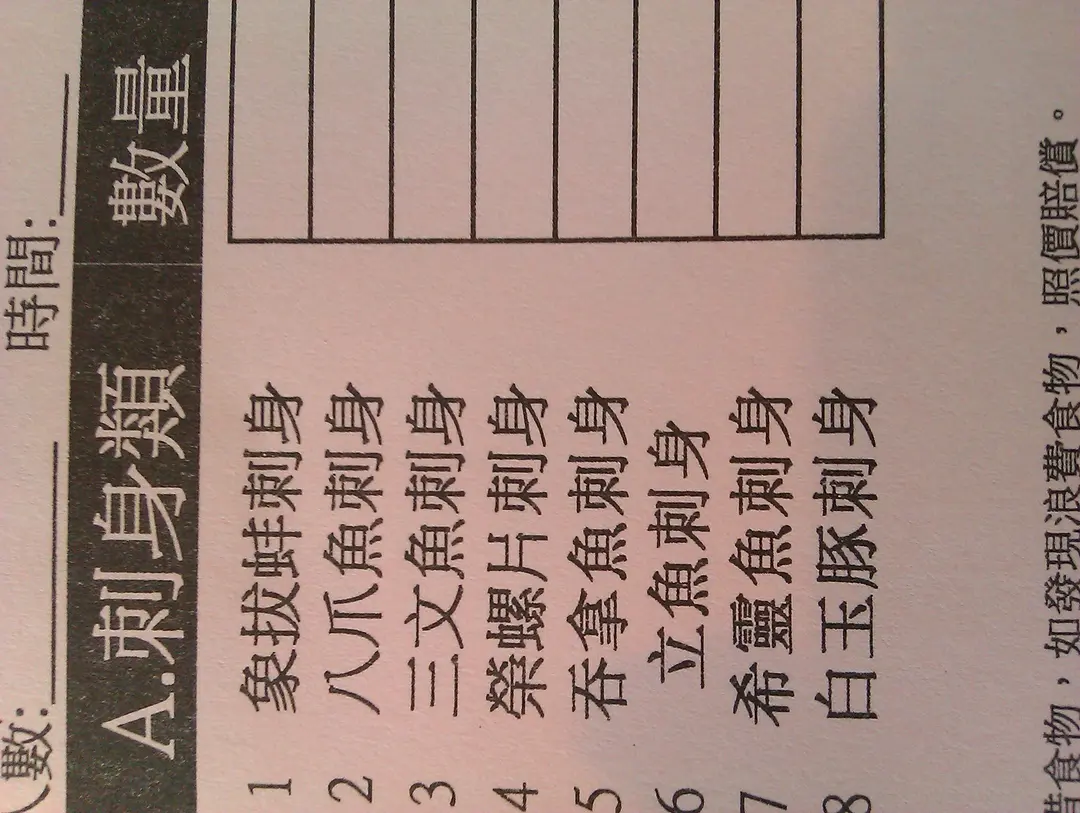 人數: 時間:
A.刺身類 數量
1 象拔蚌刺身
2 八爪魚刺身
3 三文魚刺身
4 榮螺片刺身
5 吞拿魚刺身
6 立魚刺身
7 希靈魚刺身
8 白玉豚刺身
惜食物，如發現浪費食物，照價賠償。